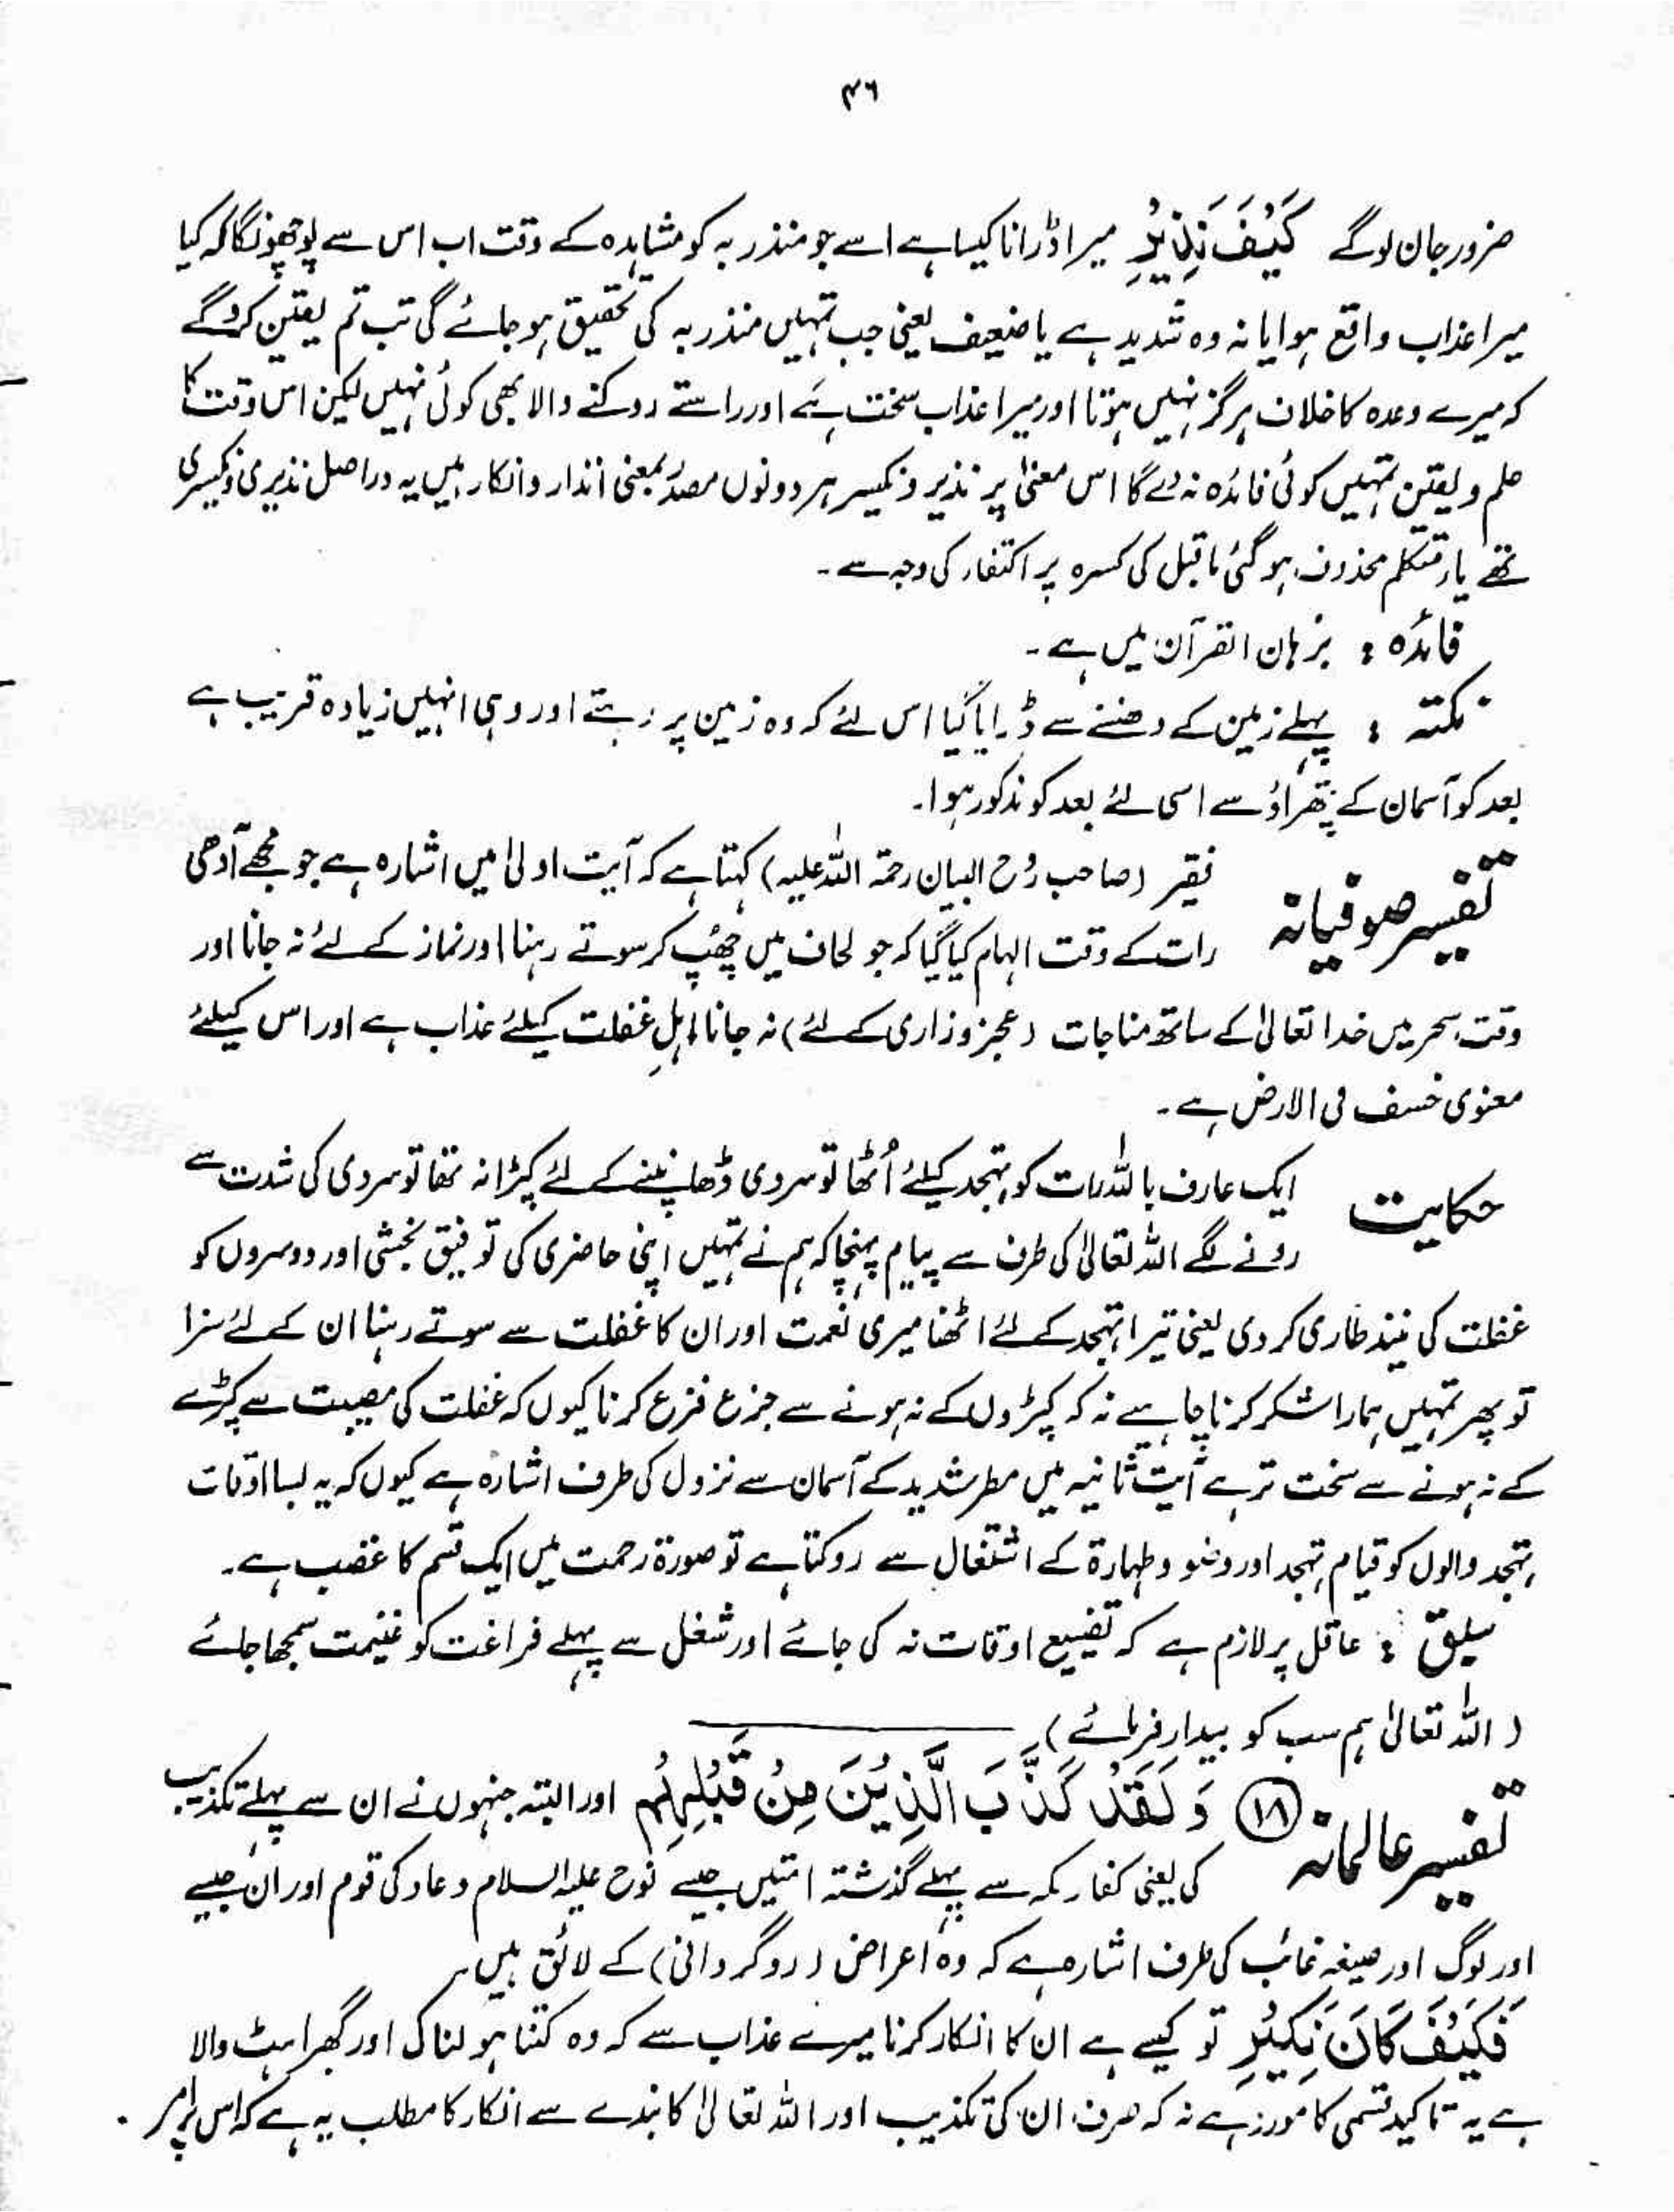 ۴۶
ضرور جان لوگے کَیْفَ نَذِیْرِ میرا ڈرانا کیسا ہے اسے جو منذر بہ کو مشاہدہ کے وقت اب اس سے پوچھونگا کہ کیا
میرا عذاب واقع ہوا یا نہ وہ شدید ہے یا ضعیف یعنی جب تمہیں منذر بہ کی تحقیق ہو جائے گی تب تم یقین کروگے
کہ میرے وعدہ کا خلاف ہرگز نہیں ہوتا اور میرا عذاب سخت ہے اور راستے روکنے والا بھی کوئی نہیں لیکن اس وقت کا
علم و یقین تمہیں کوئی فائدہ نہ دے گا اس معنیٰ پر نذیر و نکیر ہر دونوں مصدر بمعنی انذار و انکار ہیں یہ دراصل نذیری و نکیری
تھے یا متکلم محذوف ہو گئی ماقبل کی کسرہ پر اکتفاء کی وجہ سے ۔
فائدہ : برہان القرآن میں ہے ۔
نکتہ : پہلے زمین کے دھنسنے سے ڈرایا گیا اس لئے کہ وہ زمین پر رہتے اور وہی انہیں زیادہ قریب ہے
بعد کو آسمان کے پتھراؤ سے اسی لئے بعد کو مذکور ہوا۔
تفسیر صوفیانہ فقیر (صاحب رُوح البیان رحمۃ اللہ علیہ) کہتا ہے کہ آیت اولیٰ میں اشارہ ہے جو مجھے آدھی
رات کے وقت الہام کیا گیا کہ جو لحاف میں چھُپ کر سوتے رہنا اور نماز کے لئے نہ جانا اور
وقت سحر میں خدا تعالیٰ کے ساتھ مناجات (عجز و زاری کے لئے) نہ جانا اہلِ غفلت کیلئے عذاب ہے اور اس کیلئے
معنوی خسف فی الارض ہے ۔
حکایت ایک عارف باللہ رات کو تہجد کیلئے اُٹھا تو سردی ڈھانپنے کے لئے کپڑا نہ تھا تو سردی کی شدت سے
رونے لگے اللہ تعالیٰ کی طرف سے پیام پہنچا کہ ہم نے تمہیں اپنی حاضری کی توفیق بخشی اور دوسروں کو
غفلت کی نیند طاری کر دی یعنی تیرا تہجد کے لئے اٹھنا میری نعمت اور ان کا غفلت سے سوتے رہنا ان کے لئے سزا
تو پھر تمہیں ہمارا شکر کرنا چاہیے نہ کہ کپڑوں کے نہ ہونے سے جزع فزع کرنا کیوں کہ غفلت کی مصیبت سے کپڑے
کے نہ ہونے سے سخت تر ہے آیت ثانیہ میں مطر شدید کے آسمان سے نزول کی طرف اشارہ ہے کیوں کہ یہ بسا اوقات
تہجد والوں کو قیام تہجد اور وضو و طہارۃ کے اشتغال سے روکتا ہے تو صورۃ رحمت میں ایک قسم کا غضب ہے۔
سبق : عاقل پر لازم ہے کہ تضییع اوقات نہ کی جائے اور شغل سے پہلے فراغت کو غنیمت سمجھا جائے
( اللہ تعالیٰ ہم سب کو بیدار فرمائے )
تفسیر عالمانہ ⑱ وَ لَقَدْ کَذَّبَ الَّذِیْنَ مِنْ قَبْلِهِمْ اور البتہ جنہوں نے ان سے پہلے تکذیب
کی یعنی کفار مکہ سے پہلے گذشتہ امتیں جیسے نوح علیہ السلام و عاد کی قوم اور ان جیسے
اور لوگ اور صیغہ غائب کی طرف اشارہ ہے کہ وہ اعراض ( روگردانی) کے لائق ہیں۔
فَکَیْفَ کَانَ نَکِیْرِ تو کیسے ہے ان کا انکار کرنا میرے عذاب سے کہ وہ کتنا ہولناک اور گھبراہٹ والا
ہے یہ تاکید قسمی کا مورد ہے نہ کہ صرف ان کی تکذیب اور اللہ تعالیٰ کا بندے سے انکار کا مطلب یہ ہے کہ اس پر امر